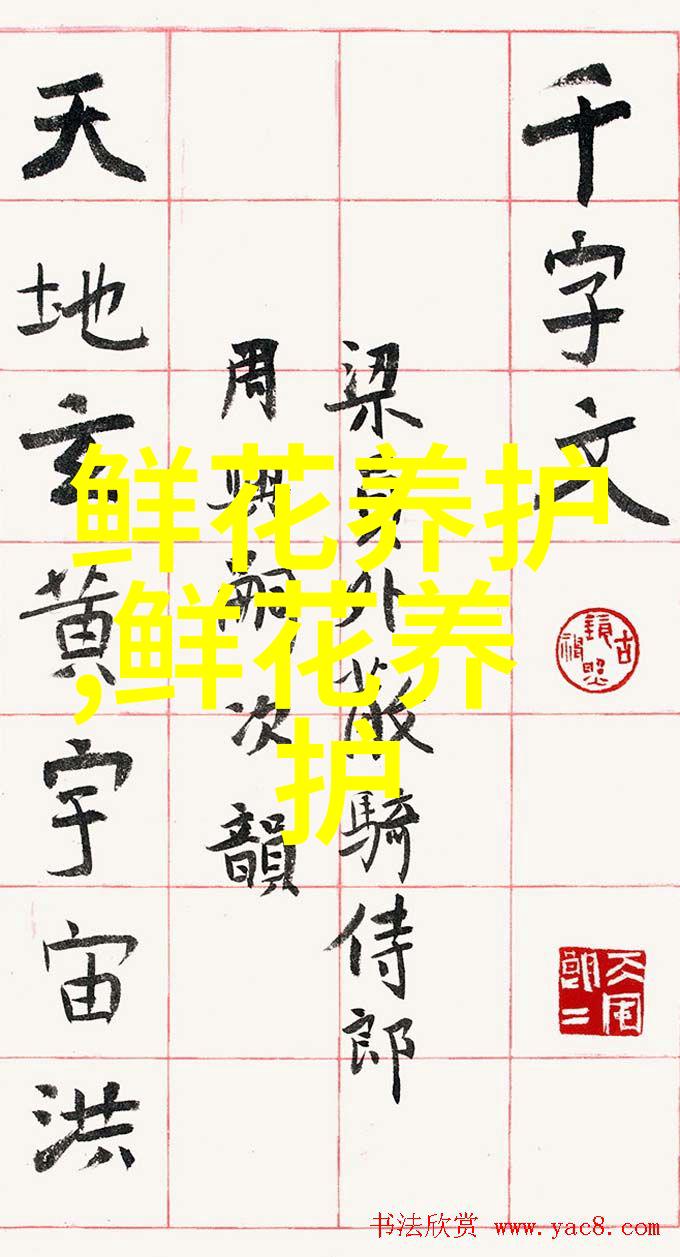 千字文
梁員外散騎侍郎
周興嗣次韻
天地玄黄宇宙洪
鲜花养护
,鲜花养
护
书法欣赏 www.yac8.com